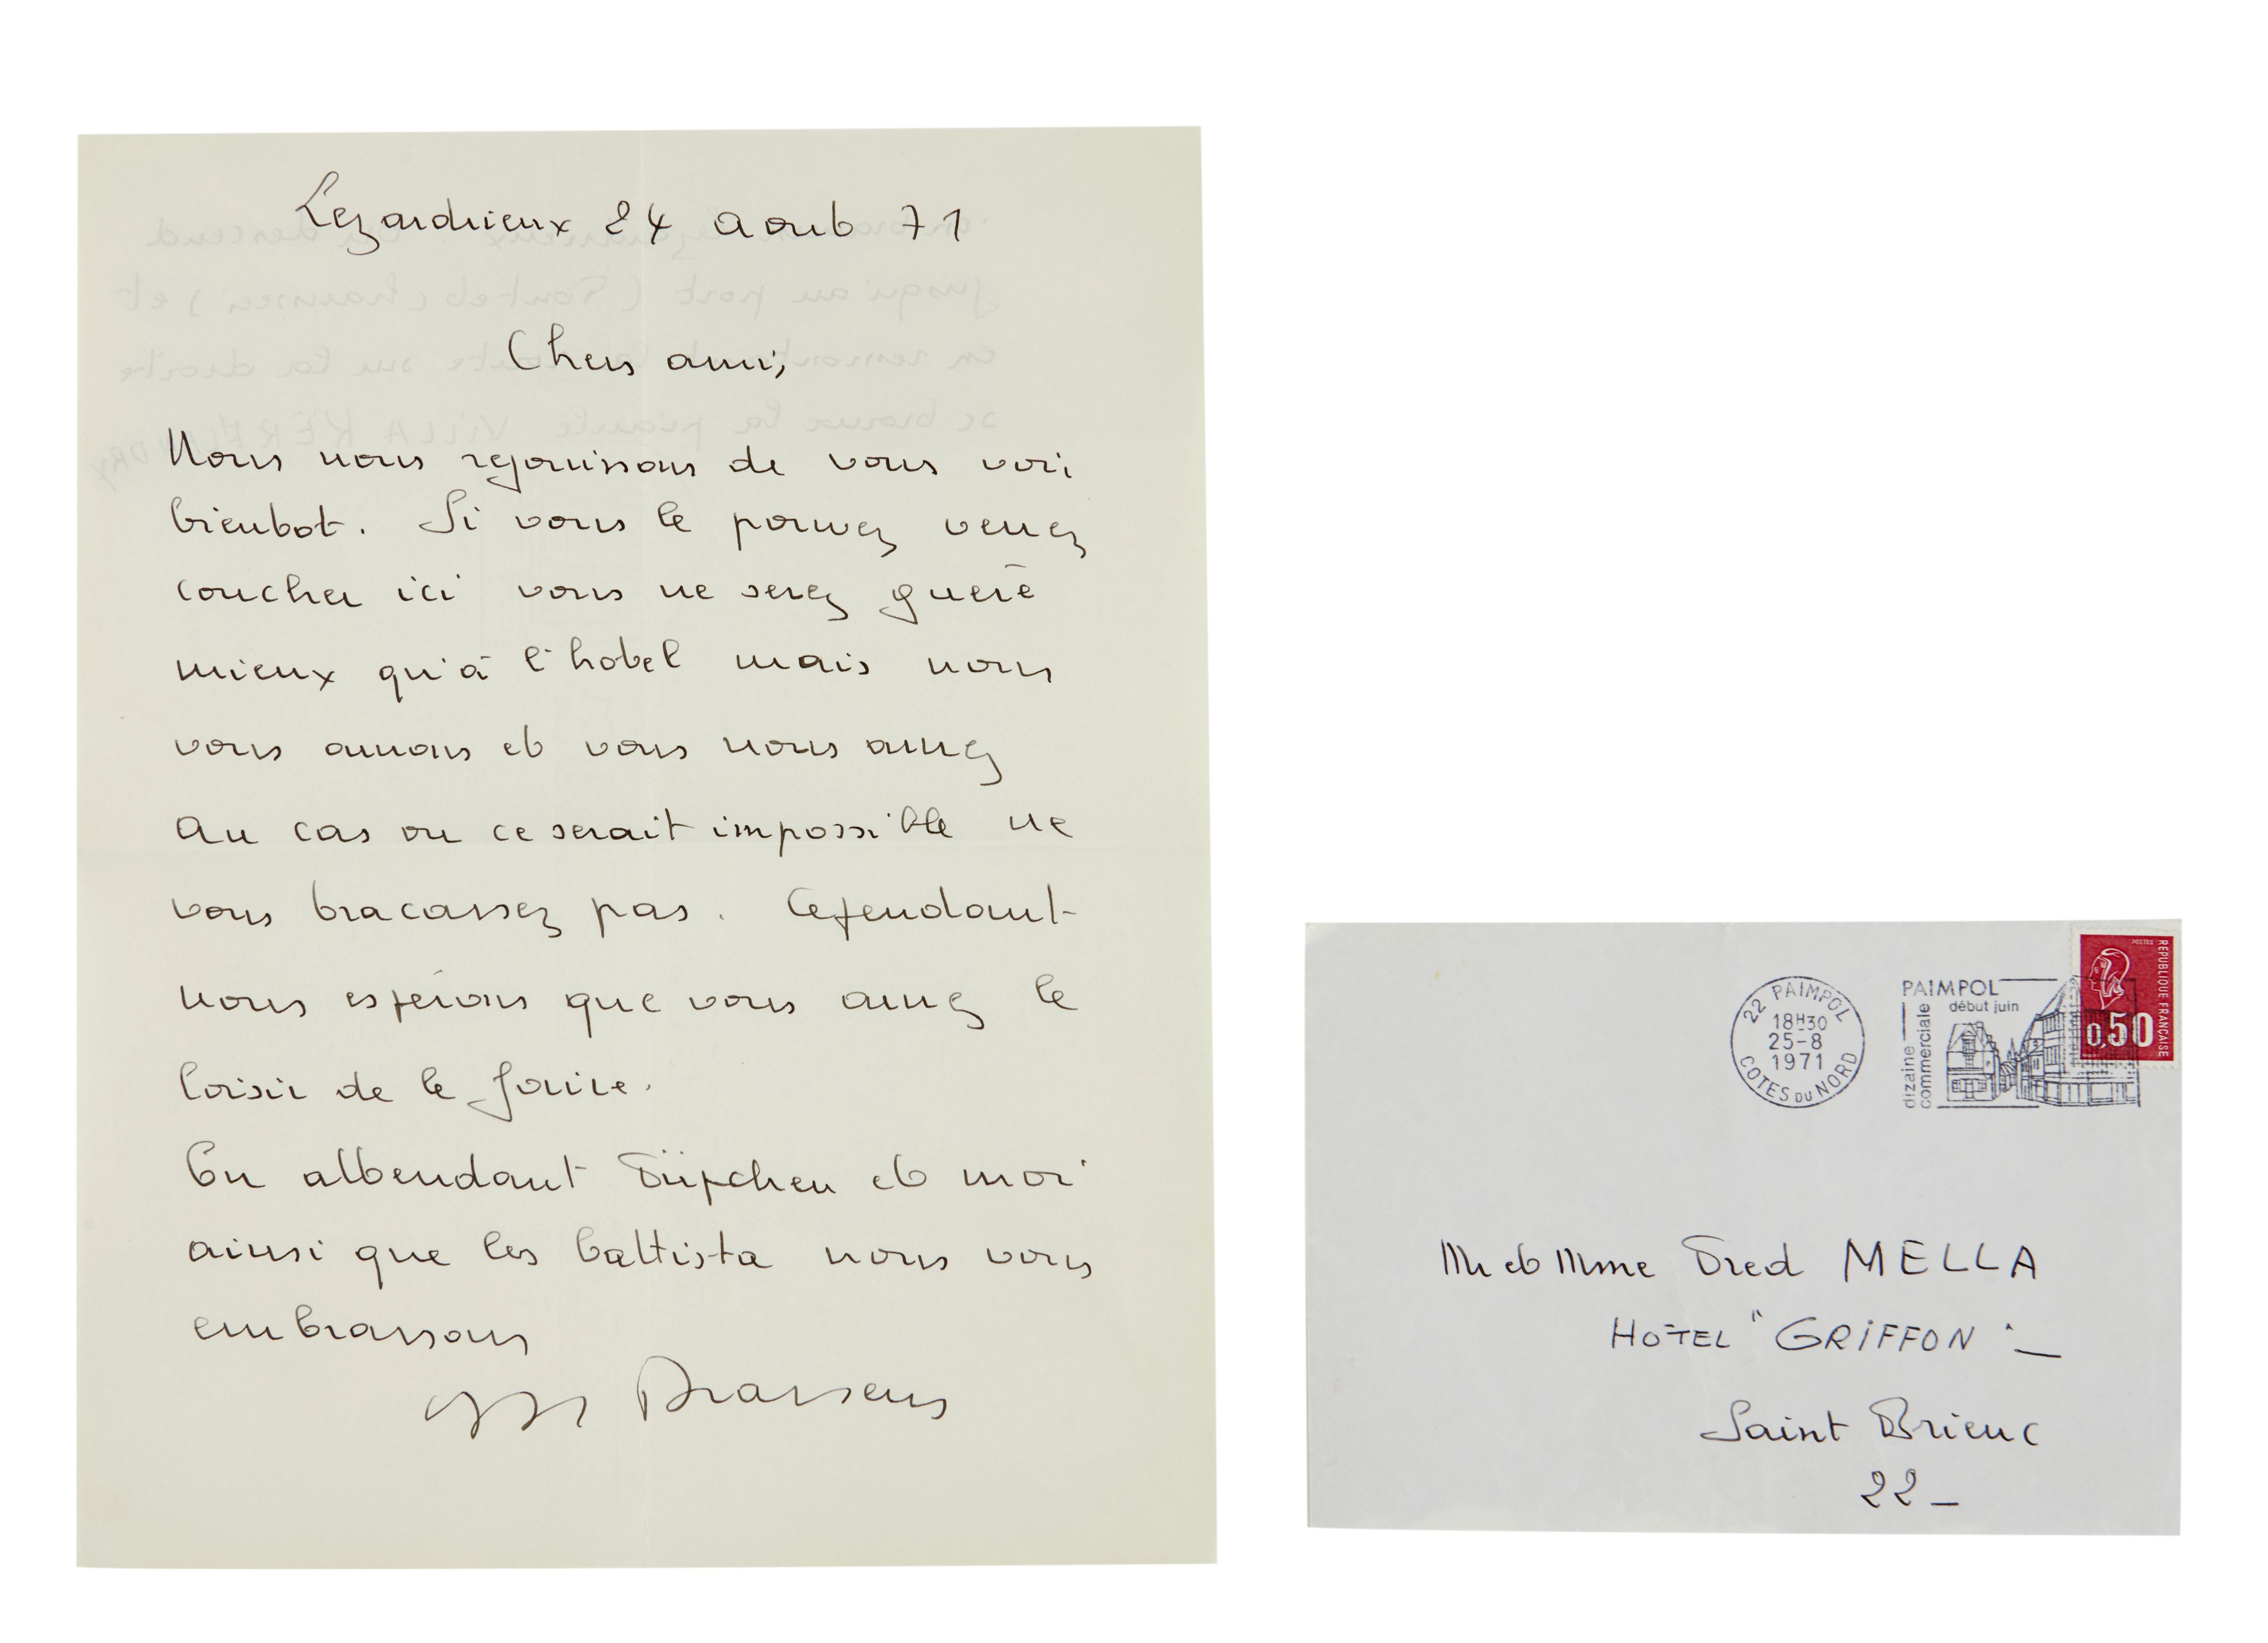 Lezardrieux 24 aout 71
Chers amis,
Nous nous rejouissons de vous voir
bientot. Si vous le pouvez venez
coucher ici vous ne serez guère
mieux qu'à l'hotel mais nous
vous aimons et vous nous aimez
Au cas ou ce serait impossible ne
vous tracassez pas. Cependant
nous espérons que vous aurez le
loisir de le faire.
En attendant Püpchen et moi
ainsi que les battista nous vous
embrassons
Brassens
22 PAIMPOL
18H30
25-8
1971
COTES DU NORD
PAIMPOL
début juin
dizaine
commerciale
POSTES
REPUBLIQUE FRANÇAISE
0,50
Mr et Mme Fred MELLA
HOTEL "GRIFFON"
Saint Brieuc
22